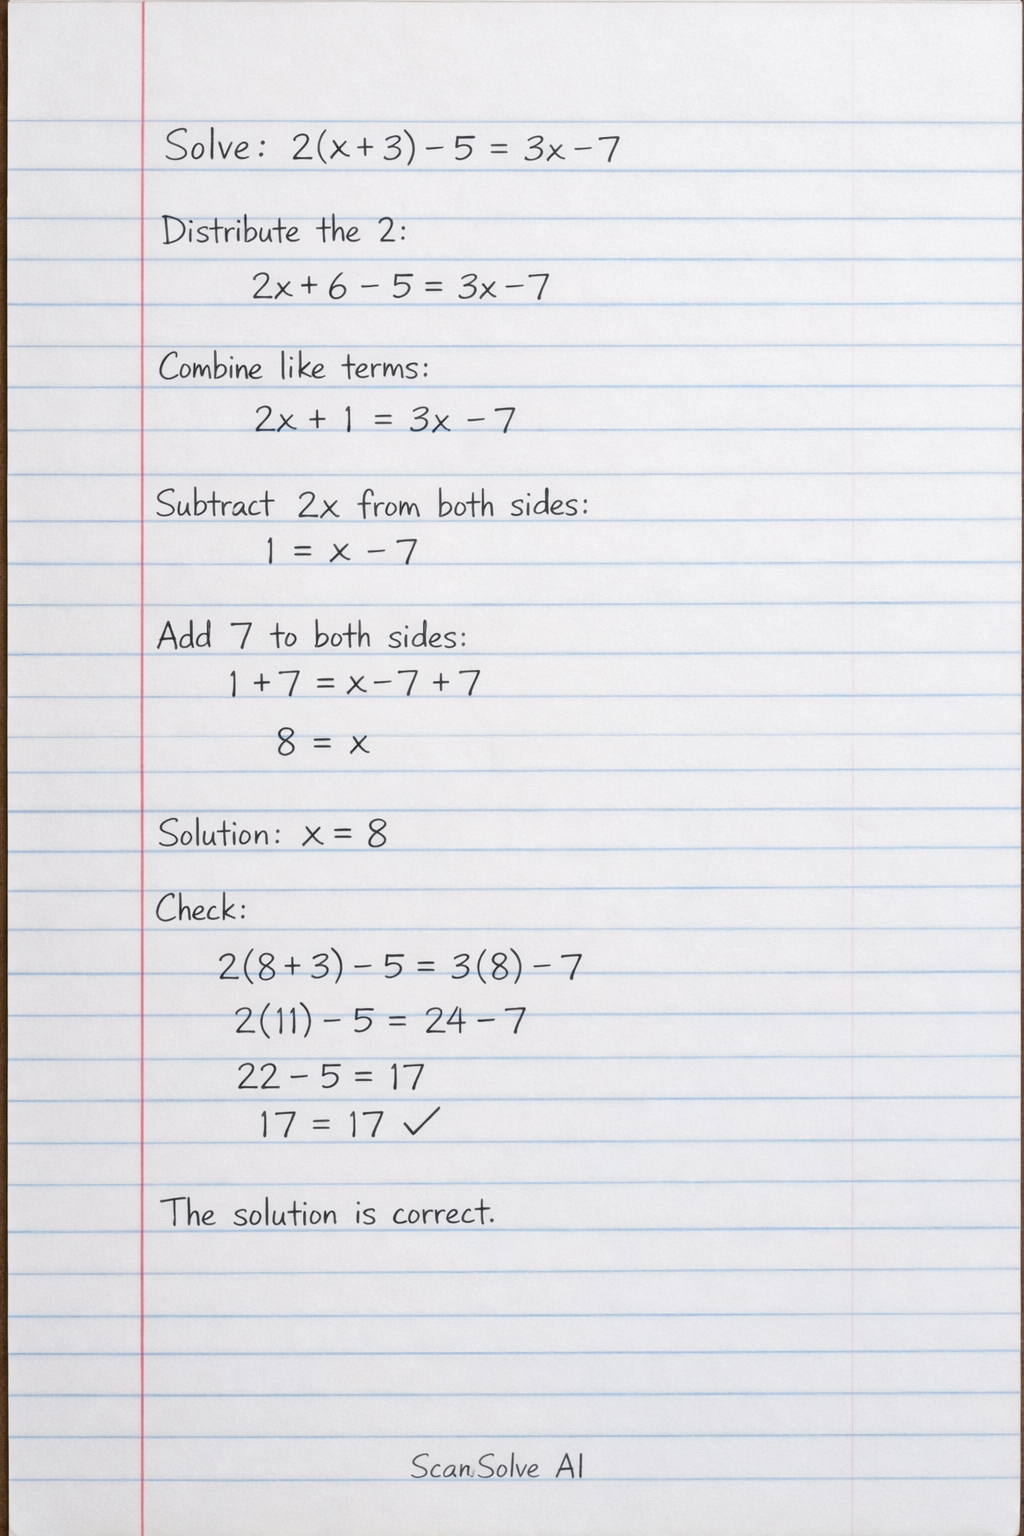 Solve: 2(x+3)-5 = 3x-7
Distribute the 2:
2x+6-5 = 3x-7
Combine like terms:
2x + 1 = 3x - 7
Subtract 2x from both sides:
1 = x - 7
Add 7 to both sides:
1+7 = x-7+7
8 = x
Solution: x = 8
Check:
2(8+3)-5 = 3(8)-7
2(11)-5 = 24-7
22-5 = 17
17 = 17 ✓
The solution is correct.
ScanSolve AI